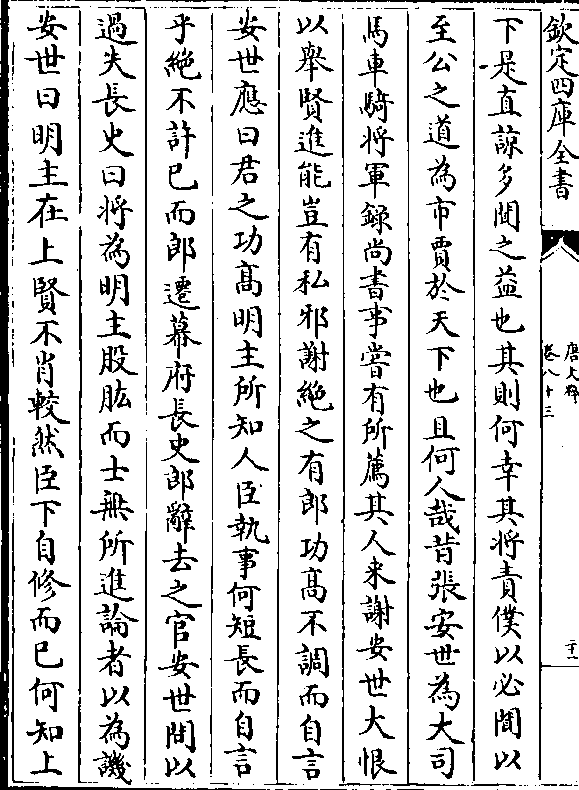 欽定四庫全書
唐文粹
卷八十三
二十一
下是直諒多聞之益也其則何幸其將責僕以必聞以
至公之道為市賈於天下也且何人哉昔張安世為大司
馬車騎將軍錄尚書事嘗有所薦其人来謝安世大恨
以舉賢進能豈有私邪謝絶之有郎功髙不調而自言
安世應曰君之功髙明主所知人臣執事何短長而自言
乎絶不許已而郎遷幕府長史郎辭去之官安世問以
過失長史曰將為明主股肱而士無所進論者以為譏
安世曰明主在上賢不肖較然臣下自修而已何知上